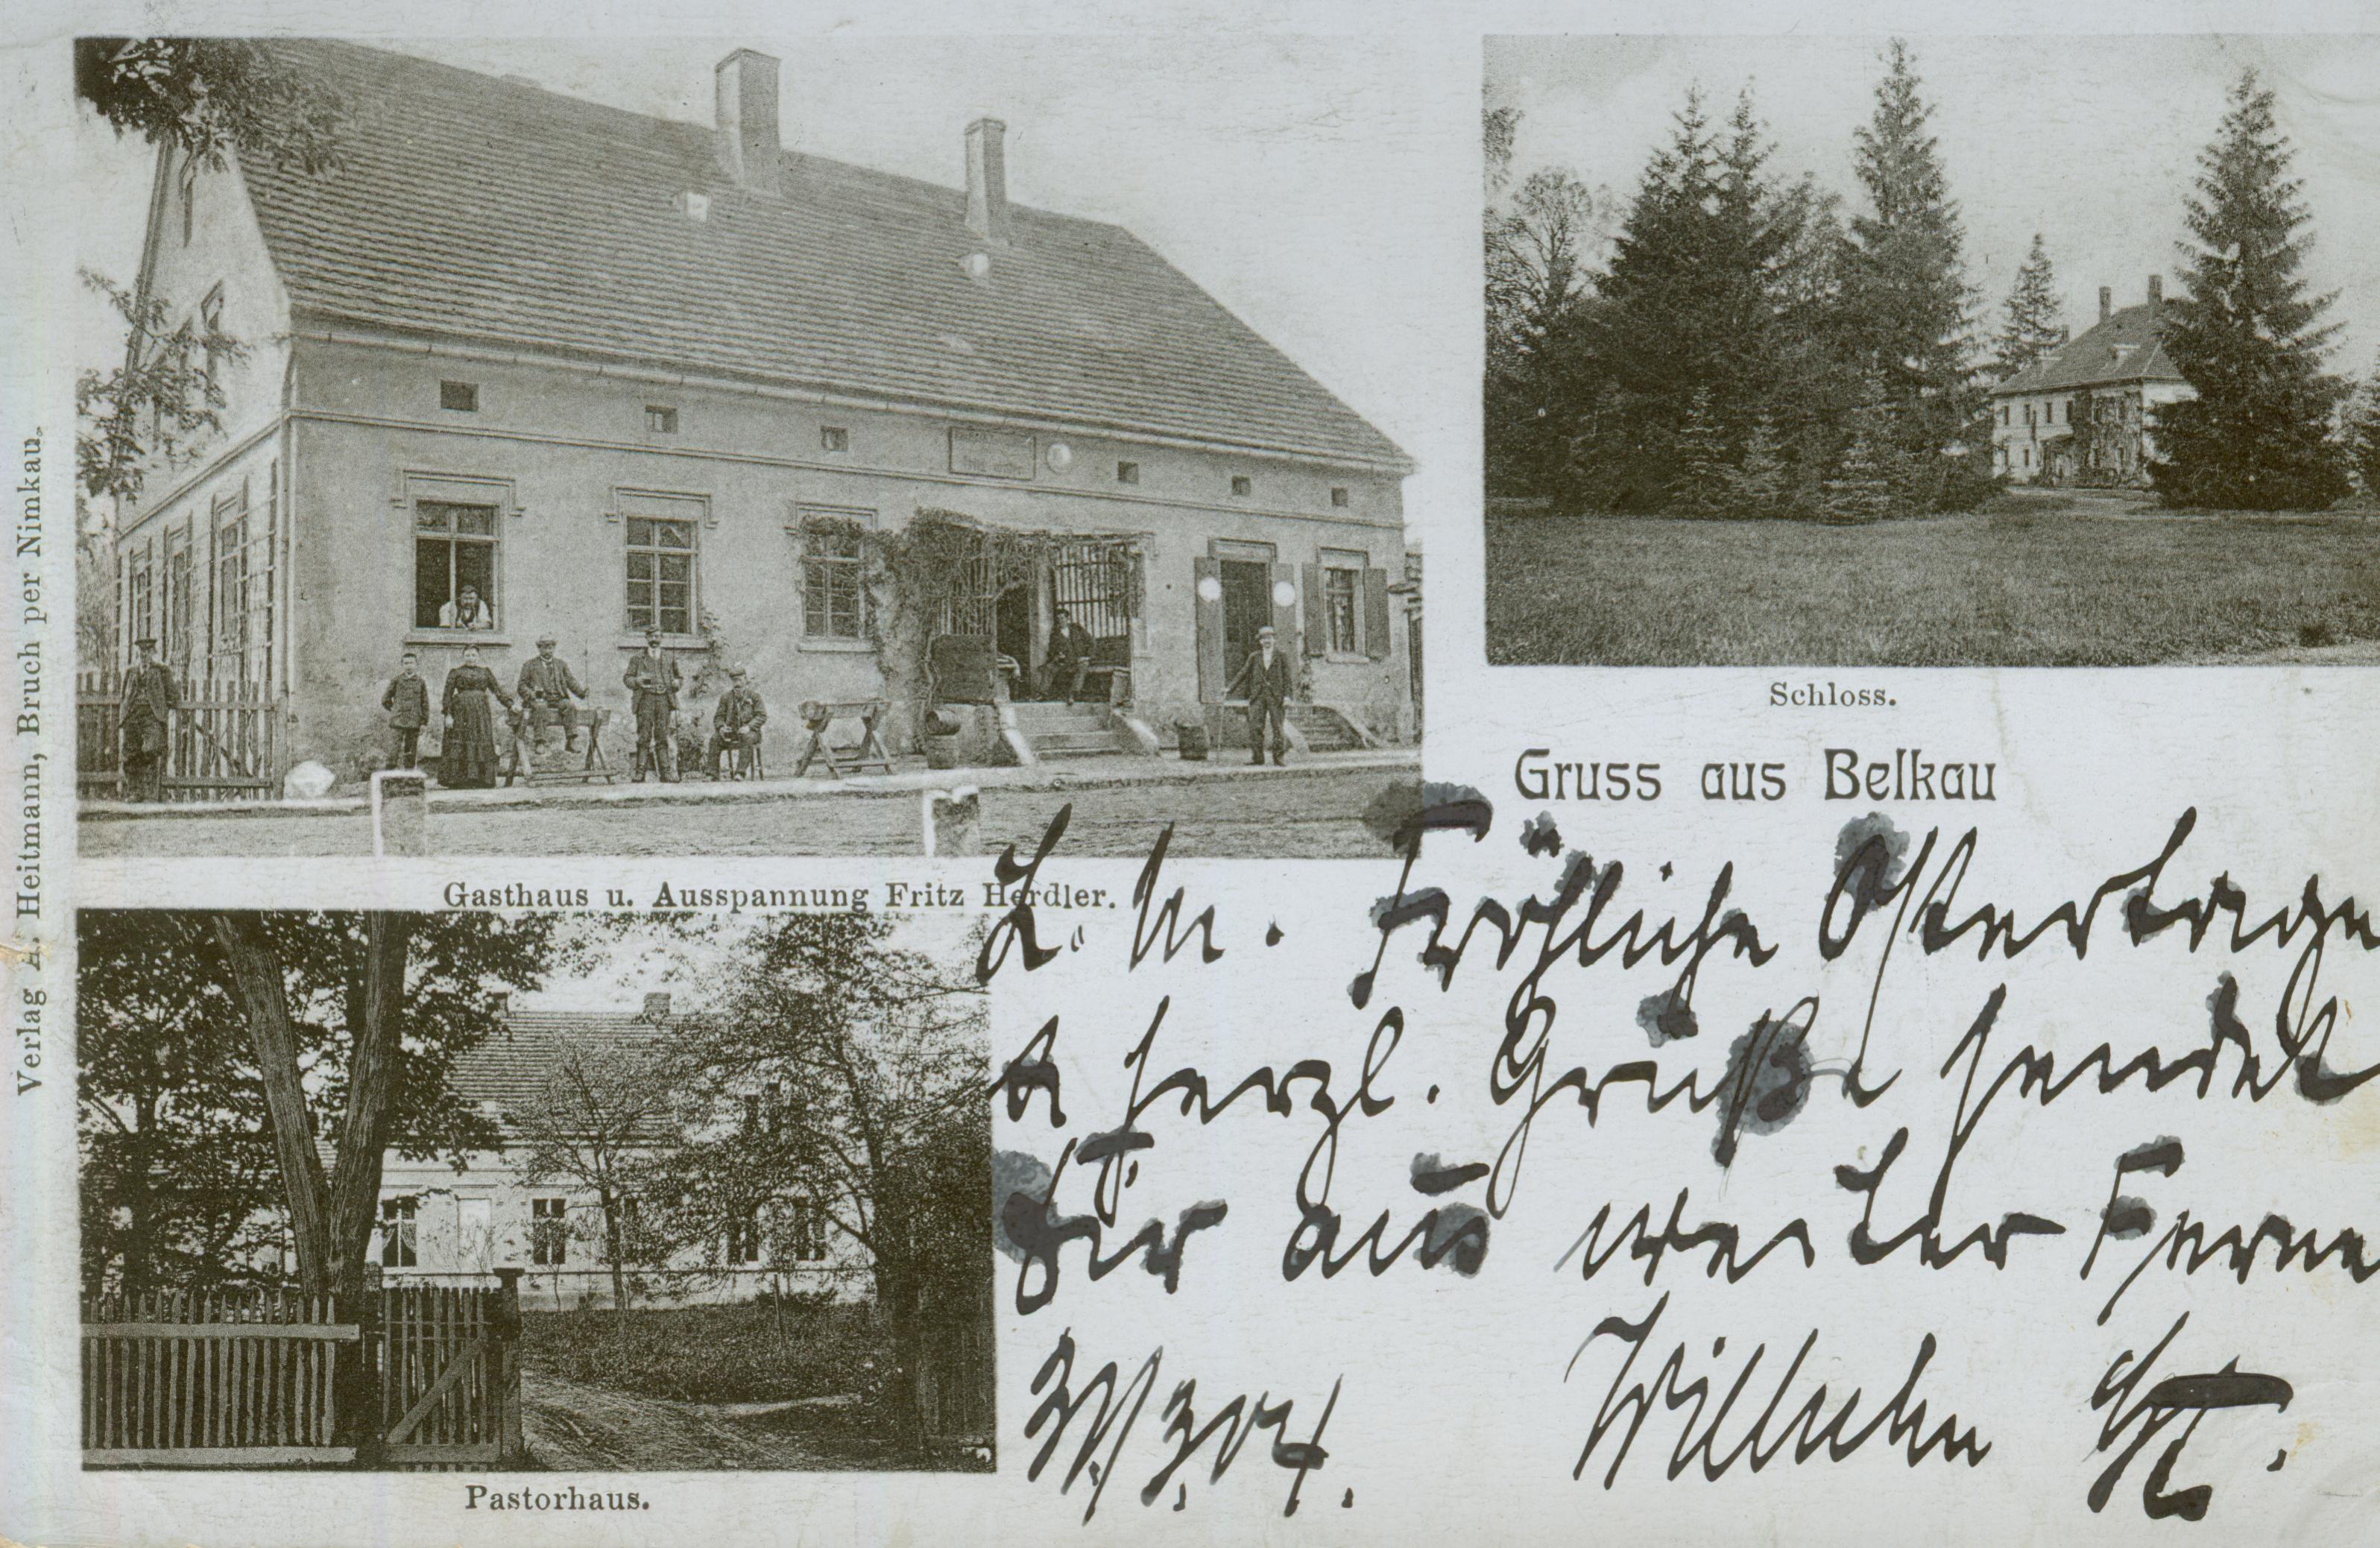 Verlag A. Heitmann, Bruch per Nimkau.
Gasthaus u. Ausspannung Fritz Herdler.
Schloss.
Gruss aus Belkau
L. M. Fröhliche Ostertage
& herzl. Grüße sendet
Dir aus weiter Ferne
Wilhelm
Pastorhaus.